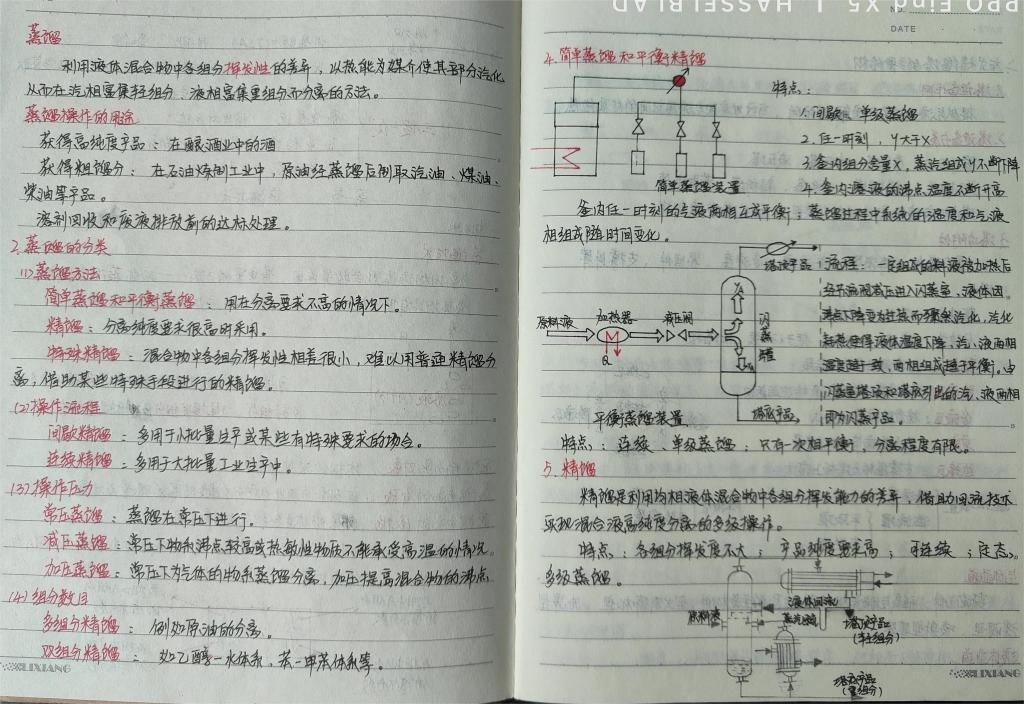 蒸馏
利用液体混合物中各组分挥发性的差异，以热能为媒介使其部分汽化
从而在汽相富集轻组分，液相富集重组分而分离的方法。
蒸馏操作的用途
获得高纯度产品：在酿酒业中的酒
获得粗馏分：在石油炼制工业中，原油经蒸馏后制取汽油、煤油、
柴油等产品。
溶剂回收和废液排放前的达标处理。
2.蒸馏的分类
(1)蒸馏方法
简单蒸馏和平衡蒸馏：用在分离要求不高的情况下。
精馏：分离纯度要求很高时采用。
特殊精馏：混合物中各组分挥发性相差很小，难以用普通精馏分
离，借助某些特殊手段进行的精馏。
(2)操作流程
间歇精馏：多用于小批量生产或某些有特殊要求的场合。
连续精馏：多用于大批量工业生产中。
(3)操作压力
常压蒸馏：蒸馏在常压下进行。
减压蒸馏：常压下物系沸点较高或热敏性物质不能承受高温的情况。
加压蒸馏：常压下为气体的物系蒸馏分离，加压提高混合物的沸点
(4)组分数目
多组分精馏：例如原油的分离。
双组分精馏：如乙醇-水体系，苯-甲苯体系等。
LIXIANG
PRO Find X5 | HASSELBLAD
NO.
DATE
4.简单蒸馏和平衡精馏
特点：
1.间歇、单级蒸馏
2.任一时刻，y大于x
3.釜内组分含量x，蒸汽组成y不断下降
4.釜内溶液的沸点温度不断升高
简单蒸馏装置
釜内任一时刻的气液两相互成平衡；蒸馏过程中系统的温度和气液
相组成随时间变化。
塔顶产品
流程：一定组成的料液被加热后
经节流阀减压进入闪蒸室、液体因
沸点下降变为过热而骤然汽化，汽化
耗热使得液体温度下降，汽、液两相
温度趋于一致，两相组成趋于平衡。由
闪蒸室塔顶和塔底引出的汽、液两相
即为闪蒸产品。
原料液
加热器
减压阀
闪蒸罐
Q
塔底产品
平衡蒸馏装置
特点：连续、单级蒸馏；只有一次相平衡，分离程度有限。
5.精馏
精馏是利用均相液体混合物中各组分挥发能力的差异，借助回流技术
实现混合液高纯度分离的多级操作。
特点：各组分挥发度不大；产品纯度要求高；可连续；定态。
多级蒸馏。
液体回流
原料液
蒸汽回流
塔顶产品
(轻组分)
塔底产品
(重组分)
LIXIANG